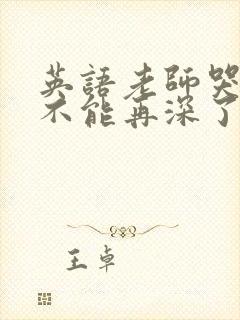 英語老師哭
不能再深了
王卓